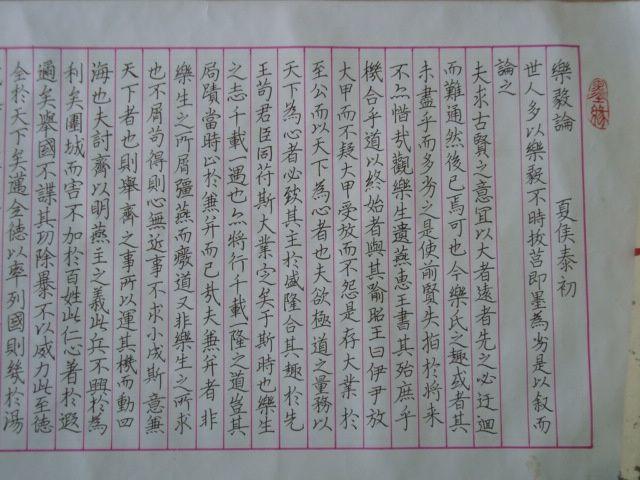 樂毅論　夏侯泰初
世人多以樂毅不時拔莒即墨為劣是以叙而
論之
夫求古賢之意宜以大者遠者先之必迂迴
而難通然後已焉可也今樂氏之趣或者其
未盡乎而多劣之是使前賢失指於將來
不亦惜哉觀樂生遺燕惠王書其殆庶乎
機合乎道以終始者與其喻昭王曰伊尹放
大甲而不疑大甲受放而不怨是存大業於
至公而以天下為心者也夫欲極道之量務以
天下為心者必致其主於盛隆合其趣於先
王苟君臣同符斯大業定矣于斯時也樂生
之志千載一遇也亦將行千載一隆之道豈其
局蹟當時止於兼并而已哉夫兼并者非
樂生之所屑彊燕而廢道又非樂生之所求
也不屑苟得則心無近事不求小成斯意兼
天下者也則舉齊之事所以運其機而動四
海也夫討齊以明燕主之義此兵不興於為
利矣圍城而害不加於百姓此仁心著於遐
邇矣舉國不謀其功除暴不以威力此至德
全於天下矣邁全德以率列國則幾於湯